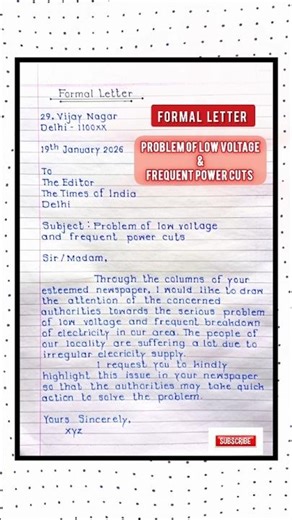 Formal Letter
29, Vijay Nagar
Delhi - 1100xx
FORMAL LETTER
19th January 2026
PROBLEM OF LOW VOLTAGE
&
FREQUENT POWER CUTS
To
The Editor
The Times of India
Delhi
Subject : Problem of low voltage
and frequent power cuts
Sir/Madam,
Through the columns of your
esteemed newspaper, I would like to draw
the attention of the concerned
authorities towards the serious problem
of low voltage and frequent breakdown
of electricity in our area. The people of
our locality are suffering a lot due to
irregular elecricity supply.
I request you to kindly
highlight this issue in your newspaper
so that the authorities may take quick
action to solve the problem.
Yours Sincerely,
xyz
SUBSCRIBE